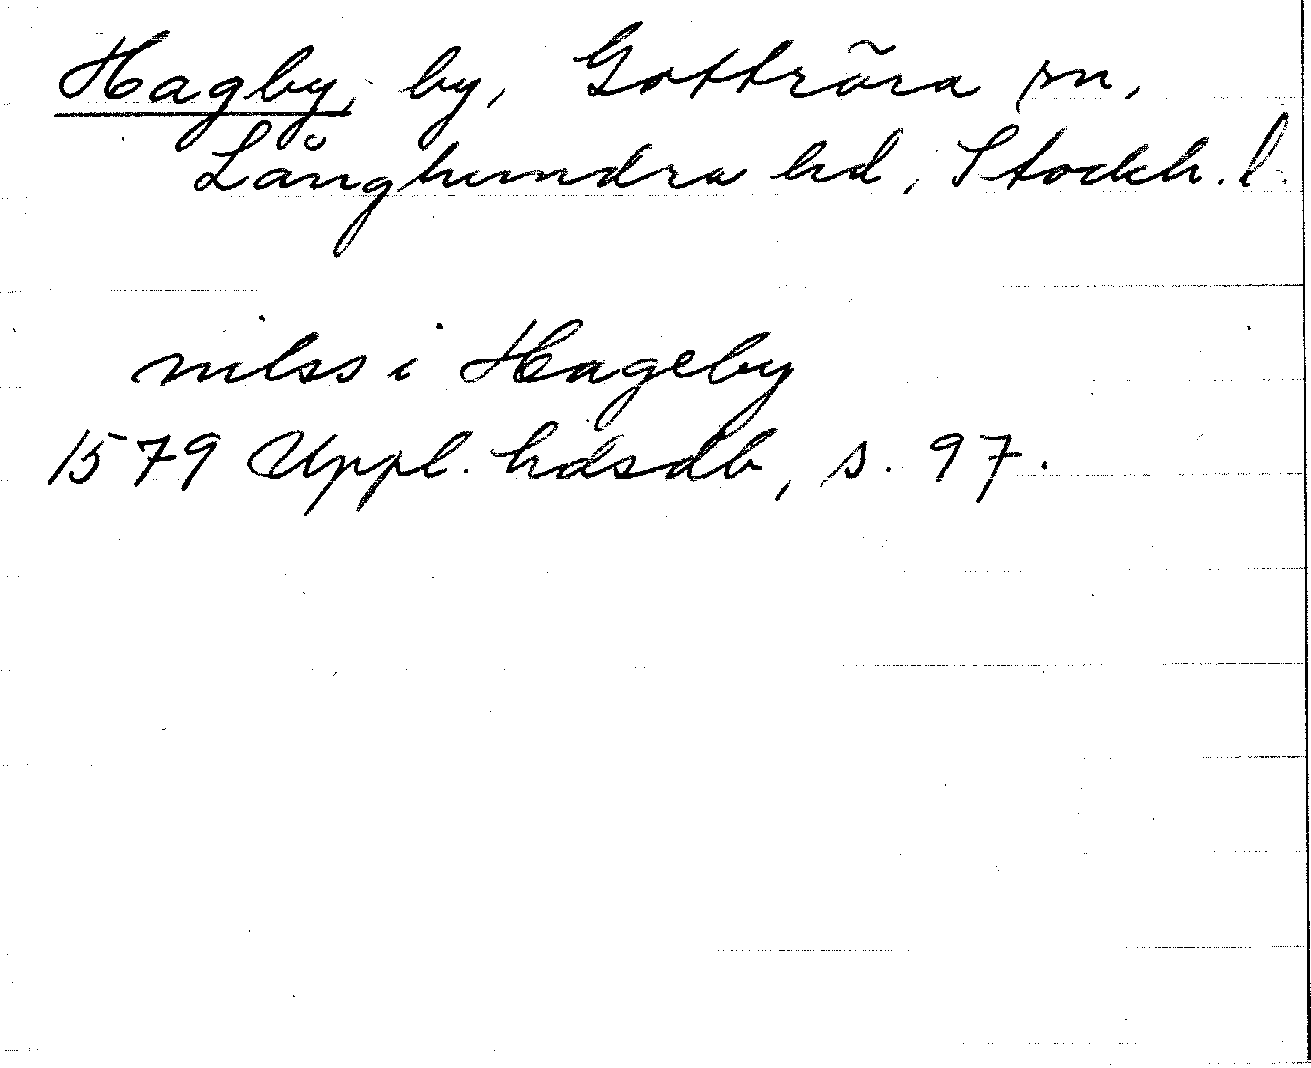 Hagby, by, Gottröra sn,
Långhundra hd, Stockh. l.
nilss i Hageby
1579 Uppl. hdsdb, s. 97.